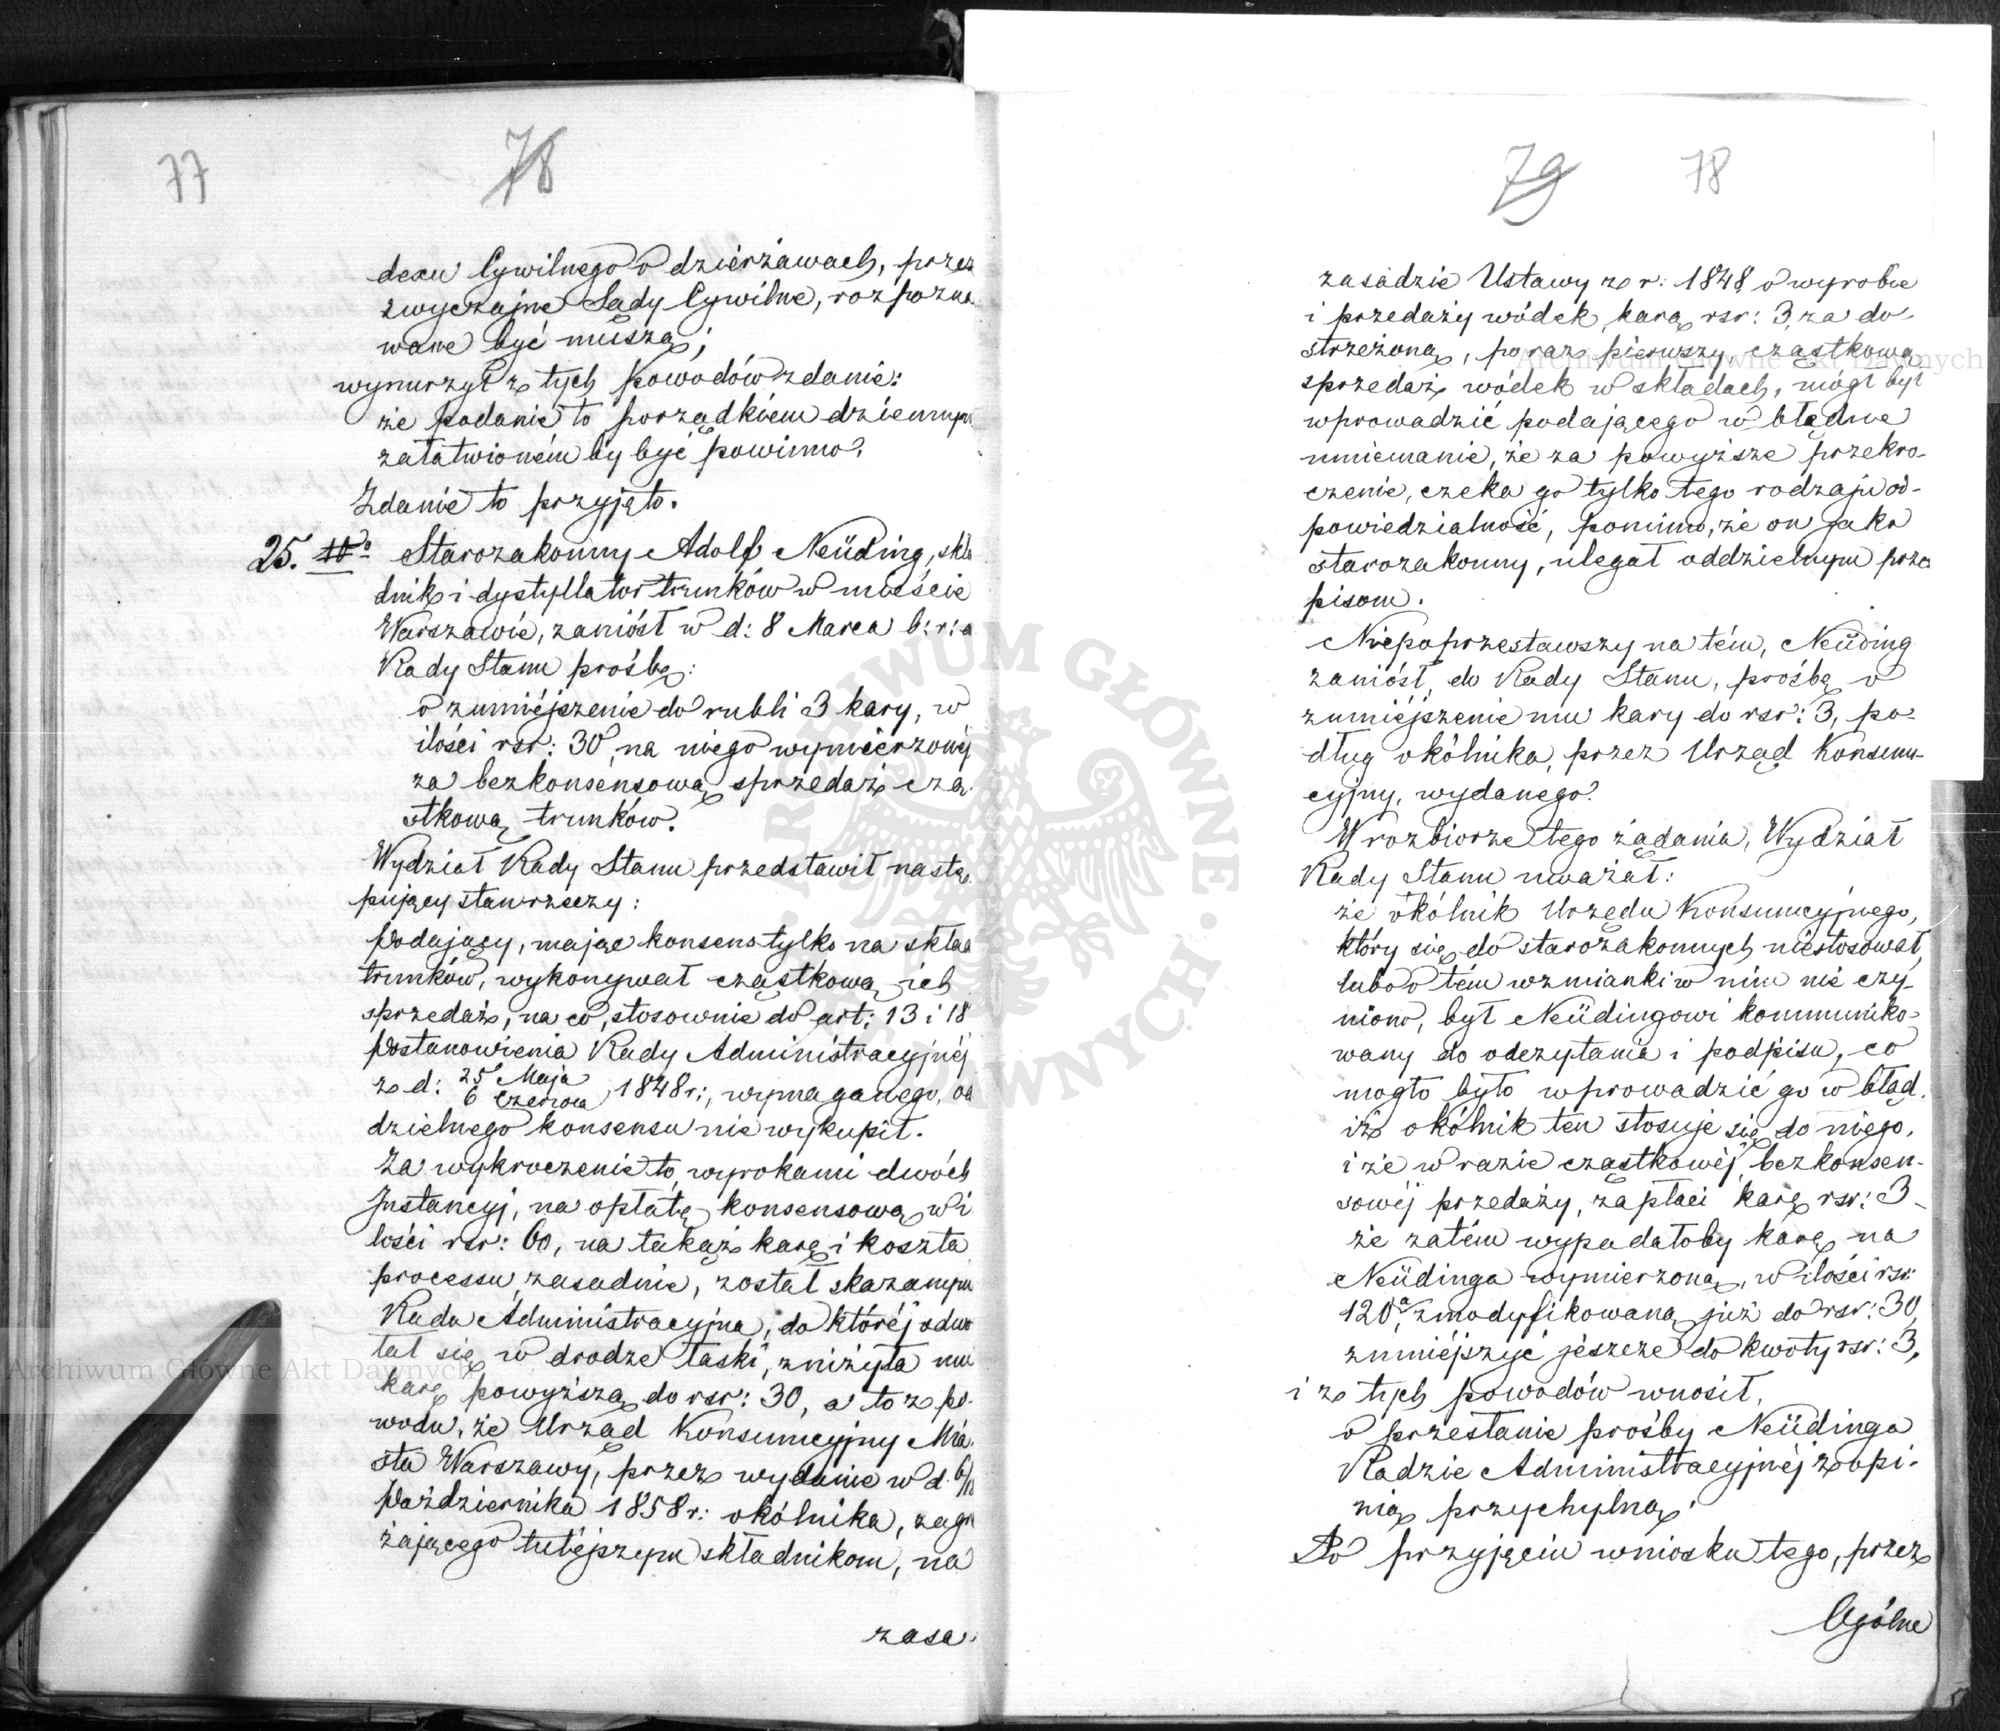 77
78
dexu Cywilnego o dzierżawach, przez
zwyczajne Sądy Cywilne, rozpozna
wane być muszą;
wynurzył z tych powodów zdanie:
że podanie to porządkiem dziennym
załatwioném by być powinno.
Zdanie to przyjęto.
25. Starozakonny Adolf Neüding, skła
dnik i dystyllator trunków w mieście
Warszawie, zaniósł w d: 8 Marca b: r: do
Rady Stanu prośbę:
o zmniéjszenie do rubli 3 kary, w
ilości rsr: 30, na niego wymierzonéj
za bezkonsensową sprzedaż czą
stkową trunków.
Wydział Rady Stanu przedstawił nastę
pujący stan rzeczy:
Podający, mając konsens tylko na skład
trunków, wykonywał cząstkową ich
sprzedaż, na co, stosownie do art: 13 i 18
Postanowienia Rady Administracyjnéj
z d: 25 Maja
6 Czerwca 1848 r:, wymaganego, od
dzielnego konsensu nie wykupił.
Za wykroczenie to, wyrokami dwóch
Instancyj, na opłatę konsensową w i
lości rsr: 60, na takąż karę i koszta
processu, zasadnie, został skazanym
Rada Administracyjna, do któréj odwo
łał się w drodze łaski, zniżyła mu
karę powyższą do rsr: 30, a to z po-
wodu, że Urząd Konsumcyjny Mia-
sta Warszawy, przez wydanie w d. 6/18
Października 1858 r: okólnika, zagra
żającego tutéjszym składnikom, na
zasa-
79
78
zasadzie Ustawy z r: 1848 o wyrobie
i przedaży wódek, karą rsr: 3, za do-
strzeżoną, po raz pierwszy, cząstkową
sprzedaż wódek w składach, mógł był
wprowadzić podającego w błędne
mniemanie, że za powyższe przekro-
czenie, czeka go tylko tego rodzaju od-
powiedzialność, pomimo, że on jako
starozakonny, ulegał oddzielnym prze
pisom.
Niepoprzestawszy na tém, Neüding
zaniósł, do Rady Stanu, prośbę o
zmniéjszenie mu kary do rsr: 3, po-
dług okólnika, przez Urząd Konsum-
cyjny, wydanego.
W rozbiorze tego żądania, Wydział
Rady Stanu uważał:
że okólnik Urzędu Konsumcyjnego,
który się do starozakonnych niestosował,
lubo o tém wzmianki w nim nie czy-
niono, był Neüdingowi kommuniko-
wany do odczytania i podpisu, co
mogło było wprowadzić go w błąd,
iż okólnik ten stosuje się do niego,
i że w razie cząstkowéj bezkonsen-
sowéj przedaży, zapłaci karę rsr: 3 -
że zatém wypadałoby karę na
Neüdinga wymierzoną, w ilości rsr:
120, a zmodyfikowaną już do rsr: 30,
zmniéjszyć jészcze do kwoty rsr: 3,
i z tych powodów wnosił,
o przesłanie prośby Neüdinga
Radzie Administracyjnéj z opi-
nią przychylną.
Po przyjęciu wniosku tego, przez
Ogólne
ARCHIWUM GŁÓWNE AKT DAWNYCH
Archiwum Główne Akt Dawnych
Archiwum Główne Akt Dawnych